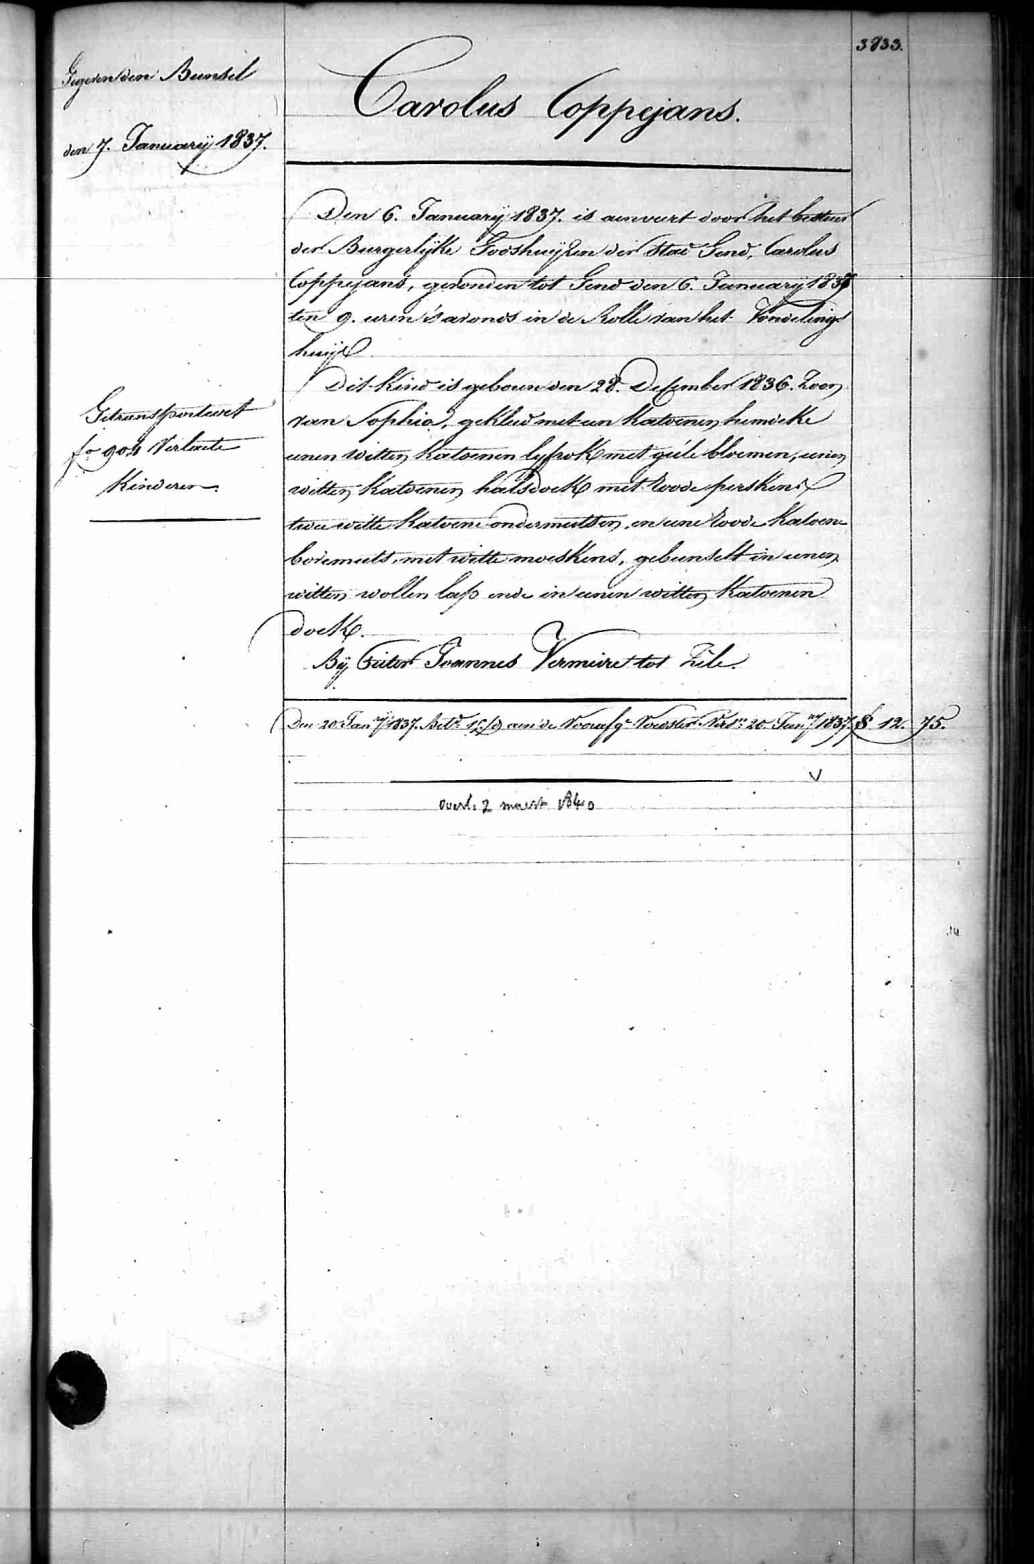 3833.
Gegeven den Bunsel
den 7. Januarÿ 1837.
Carolus Coppejans.
Den 6. Januarÿ 1837. is aenveert door het bestuer
der Burgerlÿke Godshuÿzen der Stad Gend, Carolus
Coppejans, gevonden tot Gend den 6. Januarÿ 1837
ten 9. uren 's avonds in de Rolle van het Vondelings
huÿs
Dit kind is geboren den 28. December 1836. Zoon
van Sophia, gekleed met een katoenen hemdeke
eenen witten katoenen lÿfrok met geële bloemen, eenen
witten katoenen halsdoek met roode perskens
twee witte katoene ondermutsen, en eene roode katoene
bovemuts, met witte moeskens, gebunselt in eenen
witten wollen lap ende in eenen witten katoenen
doek.
Getransporteert
fo 904 Verlaete
Kinderen.
Bÿ Pieter Joannes Vermeire tot Zele.
Den 20. Janry 1837. Betd aen de Voorsg. Voedster 20. Janry 1837. 8 12. 75.
overl. 2 maert 1840